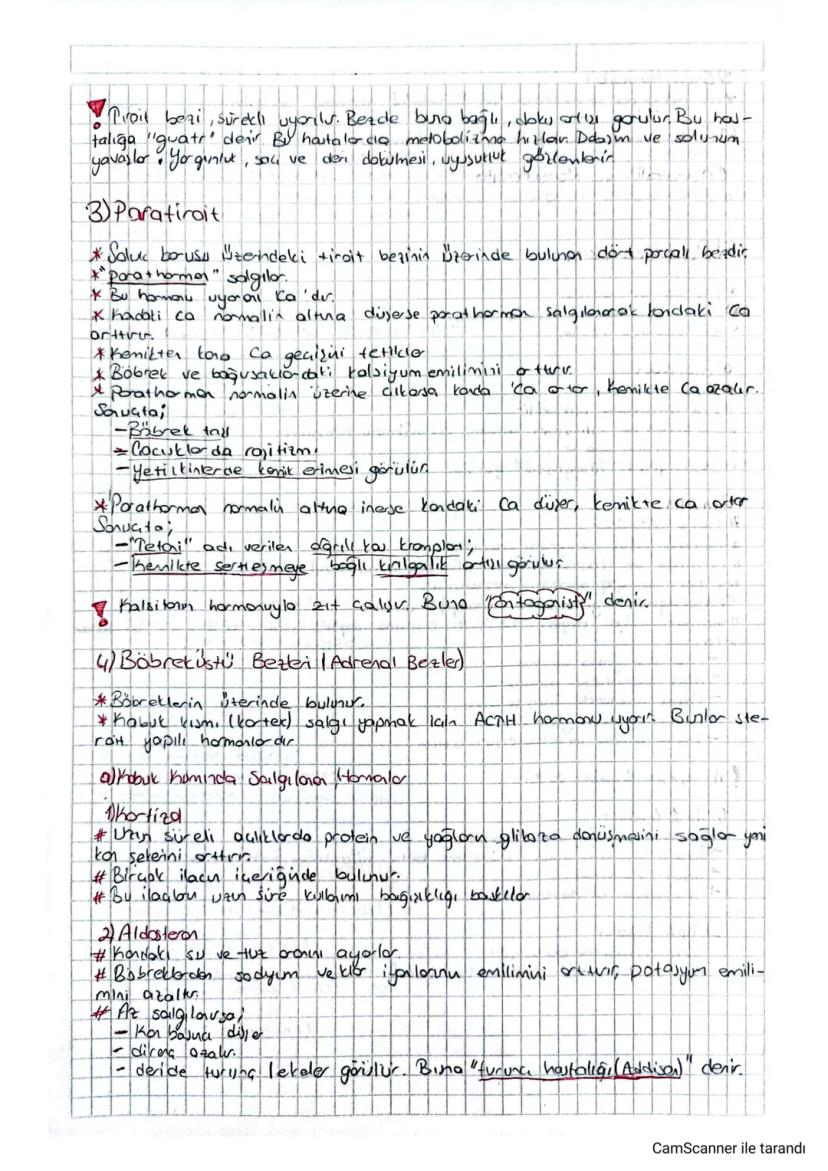 ! Tiroit bezi, sürekli uyarılır. Bezde buna bağlı, doku artışı görülür. Bu has-
talığa "guatr" denir. Bu hastalarda metabolizma hızları Dolaşım ve solunum
yavaşlar. Yorgunluk, saç ve deri dökülmesi, uyuşukluk gözlenlenir
3) Paratiroit
* Soluk borusu üzerindeki tiroit bezinin üzerinde bulunan dört parçalı bezdir.
* "parathormon" salgılar.
* Bu hormonu uyaran Ca'dır.
* Kandaki ca normalin altına düşerse parathormon salgılanarak kandaki Ca
arttırır.
* Kemikten kana Ca geçişini tetikler
* Böbrek ve bağırsaklardaki kalsiyum emilimini arttırır.
* Parathormon normalin üzerine çıkarsa kanda Ca artar, kemikte Ca azalır.
Sonuçta;
- Böbrek taşı
- Çocuklarda raşitizm
- Yetişkinlerde kemik erimesi görülür.
* Parathormon normalin altına inerse kandaki Ca düşer, kemikte ca artar
Sonuçta;
- "Tetani" adı verilen ağrılı kas krampları;
- Kemikte sertleşmeye bağlı kırılganlık artışı görülür
! Kalsitonin hormonuyla zıt çalışır. Buna "antagonist" denir.
4) Böbreküstü Bezleri (Adrenal Bezler)
* Böbreklerin üzerinde bulunur.
* Kabuk kısmı (korteks) salgı yapmak için ACTH hormonu uyarır. Bunlar ste-
roit yapılı hormonlardır
a) Kabuk Kısmında Salgılanan Hormonlar
1) Kortizol
# Uzun süreli açlıklarda protein ve yağların glikoza dönüşmesini sağlar yani
kan şekerini arttırır.
# Birçok ilacın içeriğinde bulunur.
# Bu ilaçların uzun süre kullanımı bağışıklığı baskılar
2) Aldosteron
# Kandaki su ve tuz oranını ayarlar
# Böbreklerden sodyum ve klor iyonlarının emilimini arttırır, potasyum emili-
mini azaltır.
# Az salgılanırsa;
- Kan basıncı düşer
- direnç azalır.
- deride turunç lekeler görülür. Buna "turuncu hastalığı (Addison)" denir.
CamScanner ile tarandı